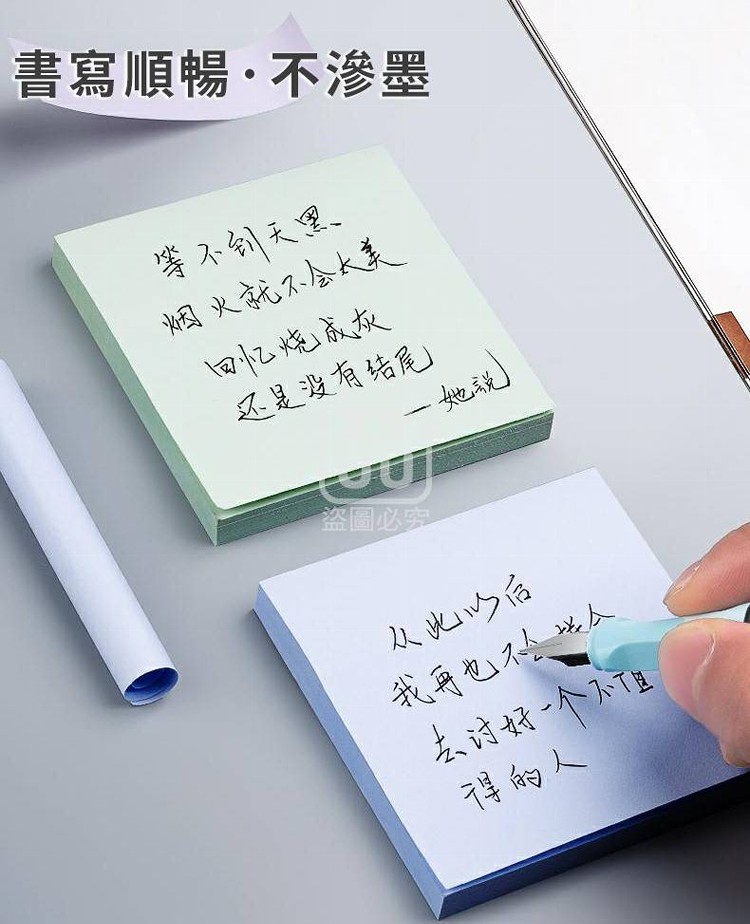 書寫順暢·不滲墨
等不到天黑、
烟火就不会太美
回忆烧成灰
还是没有结尾
—她説
JU
盗圖必究
从此以后
我再也不会
去讨好一个不值
得的人